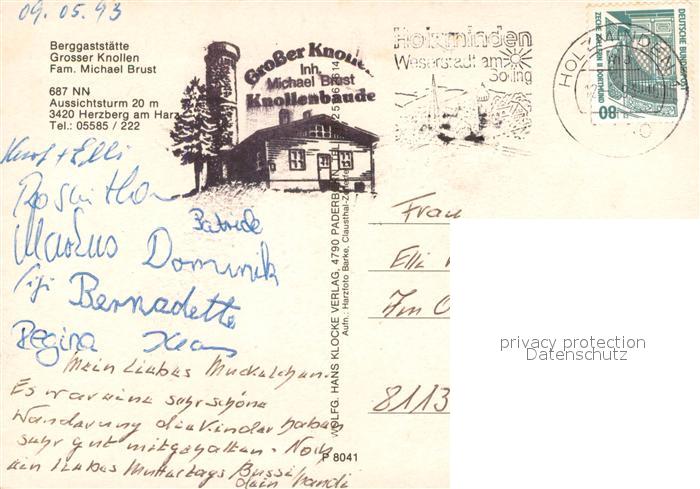 09.05.93
Berggaststätte
Grosser Knollen
Fam. Michael Brust
687 NN
Aussichtsturm 20 m
3420 Herzberg am Harz
Tel.: 05585 / 222
Großer Knollen
Inh.
Michael Brust
Knollenbaude
Holzminden
Weserstadt am
Solling
HOLZMINDEN
DEUTSCHE BUNDESPOST
ZECHE ZOLLERN II DORTMUND
80
+ Elli
Roswitha
Patrick
Markus
Dominik
Gigi
Bernadette
Regina
Klaus
Mein liebes
Es war eine sehr schöne
Wanderung die Kinder haben
sehr gut mitgehalten. Noch
ein liebes Muttertags Bussi
dein
WOLFG. HANS KLOCKE VERLAG, 4790 PADERBORN
Aufn.: Harzfoto Barke, Clausthal-Zellerfeld
P 8041
Frau
Elli
Im
8113
privacy protection
Datenschutz